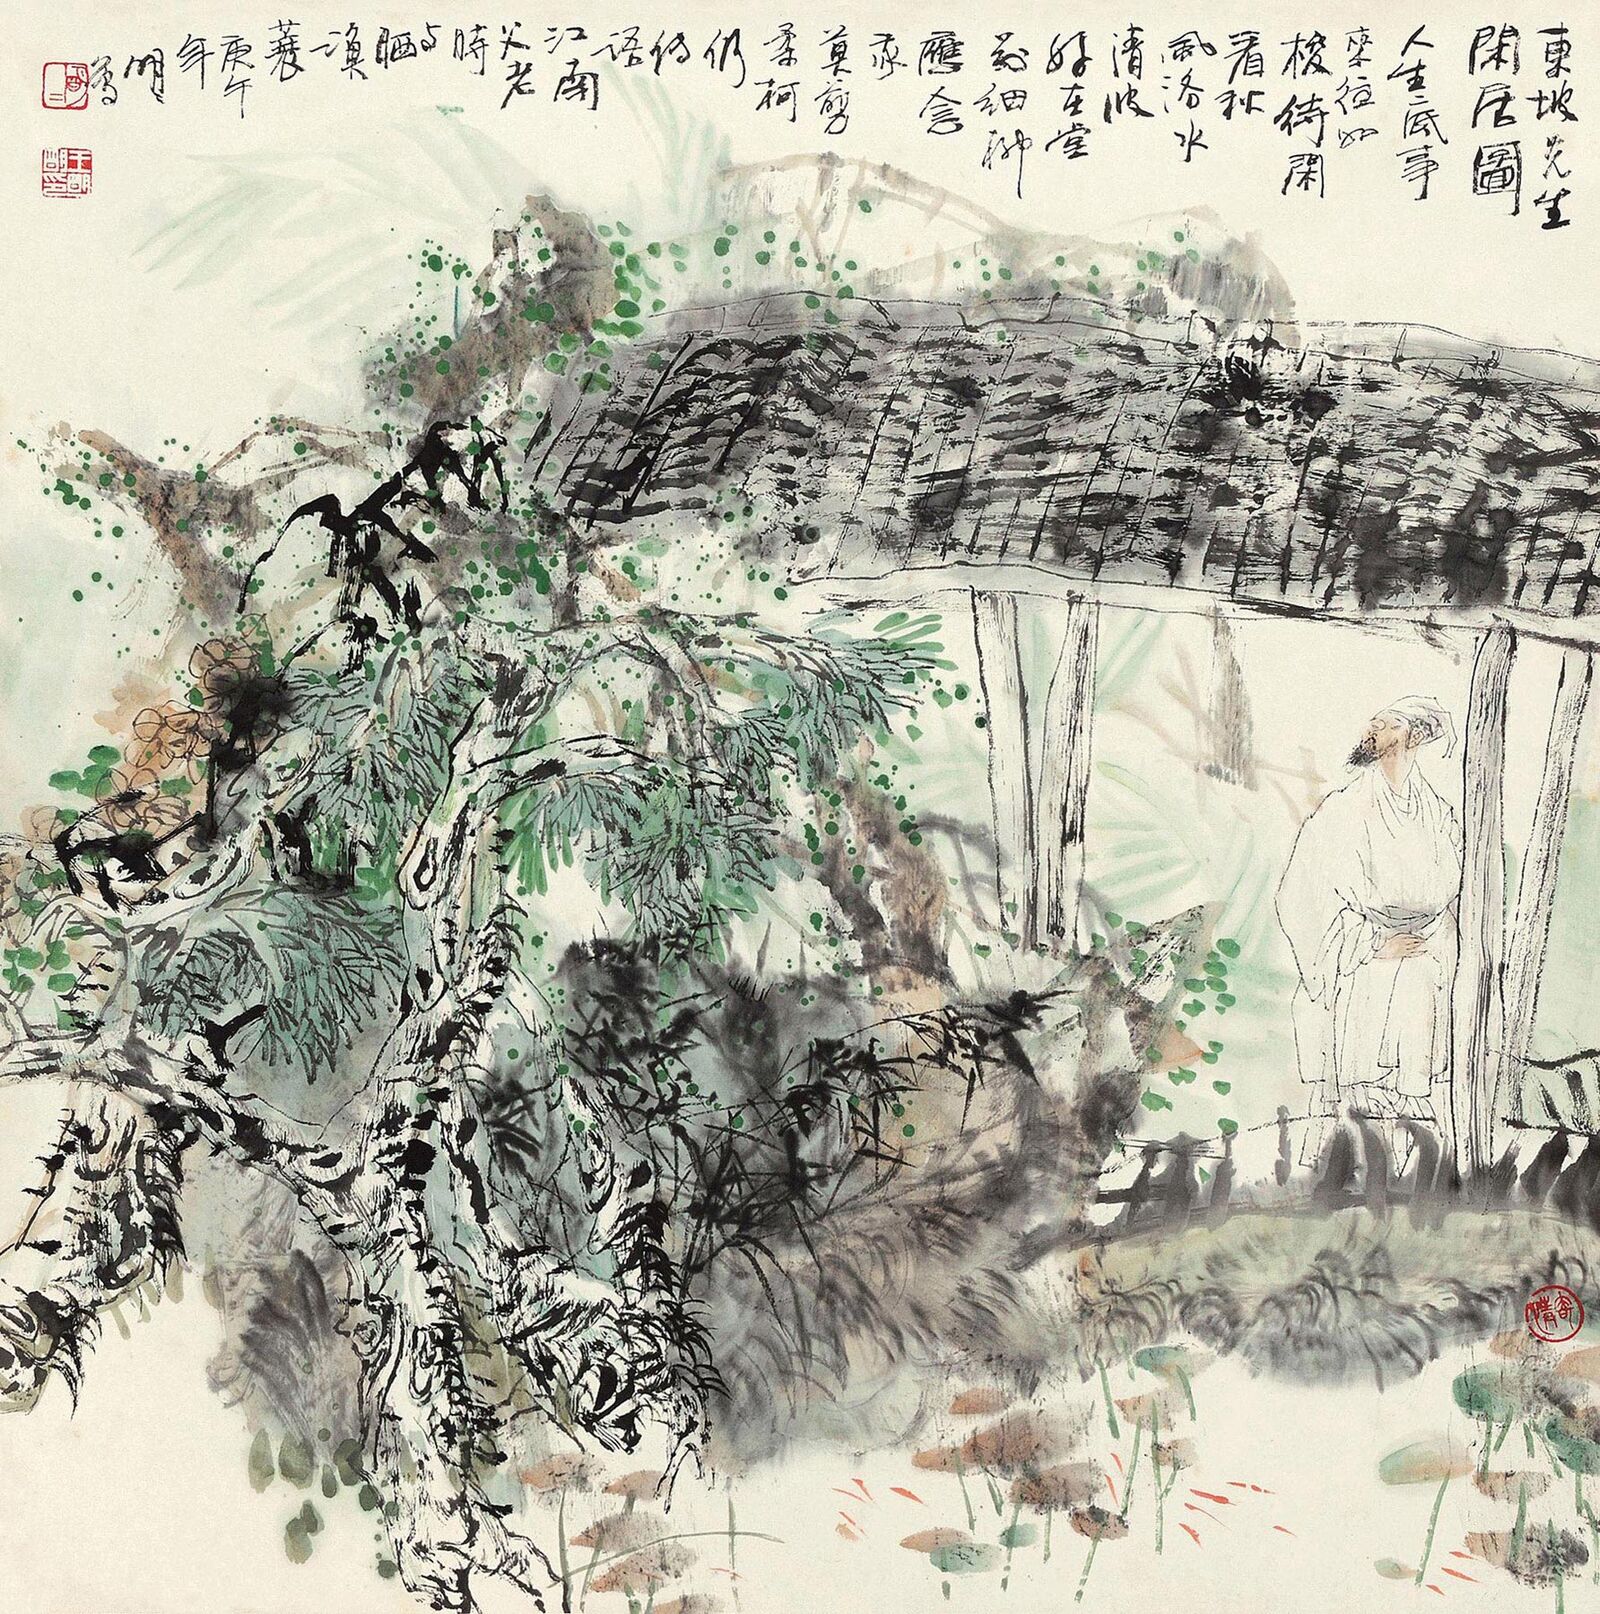 東坡先生
閑居圖
人生底事
來往如
梭待閑
看秋
風洛水
清波
好在堂
前細柳
應念
我
莫剪
柔柯
仍
傳
語
江南
父老
時
與
晒
漁
蓑
庚午
年
明々
寫
王明明印
寄情